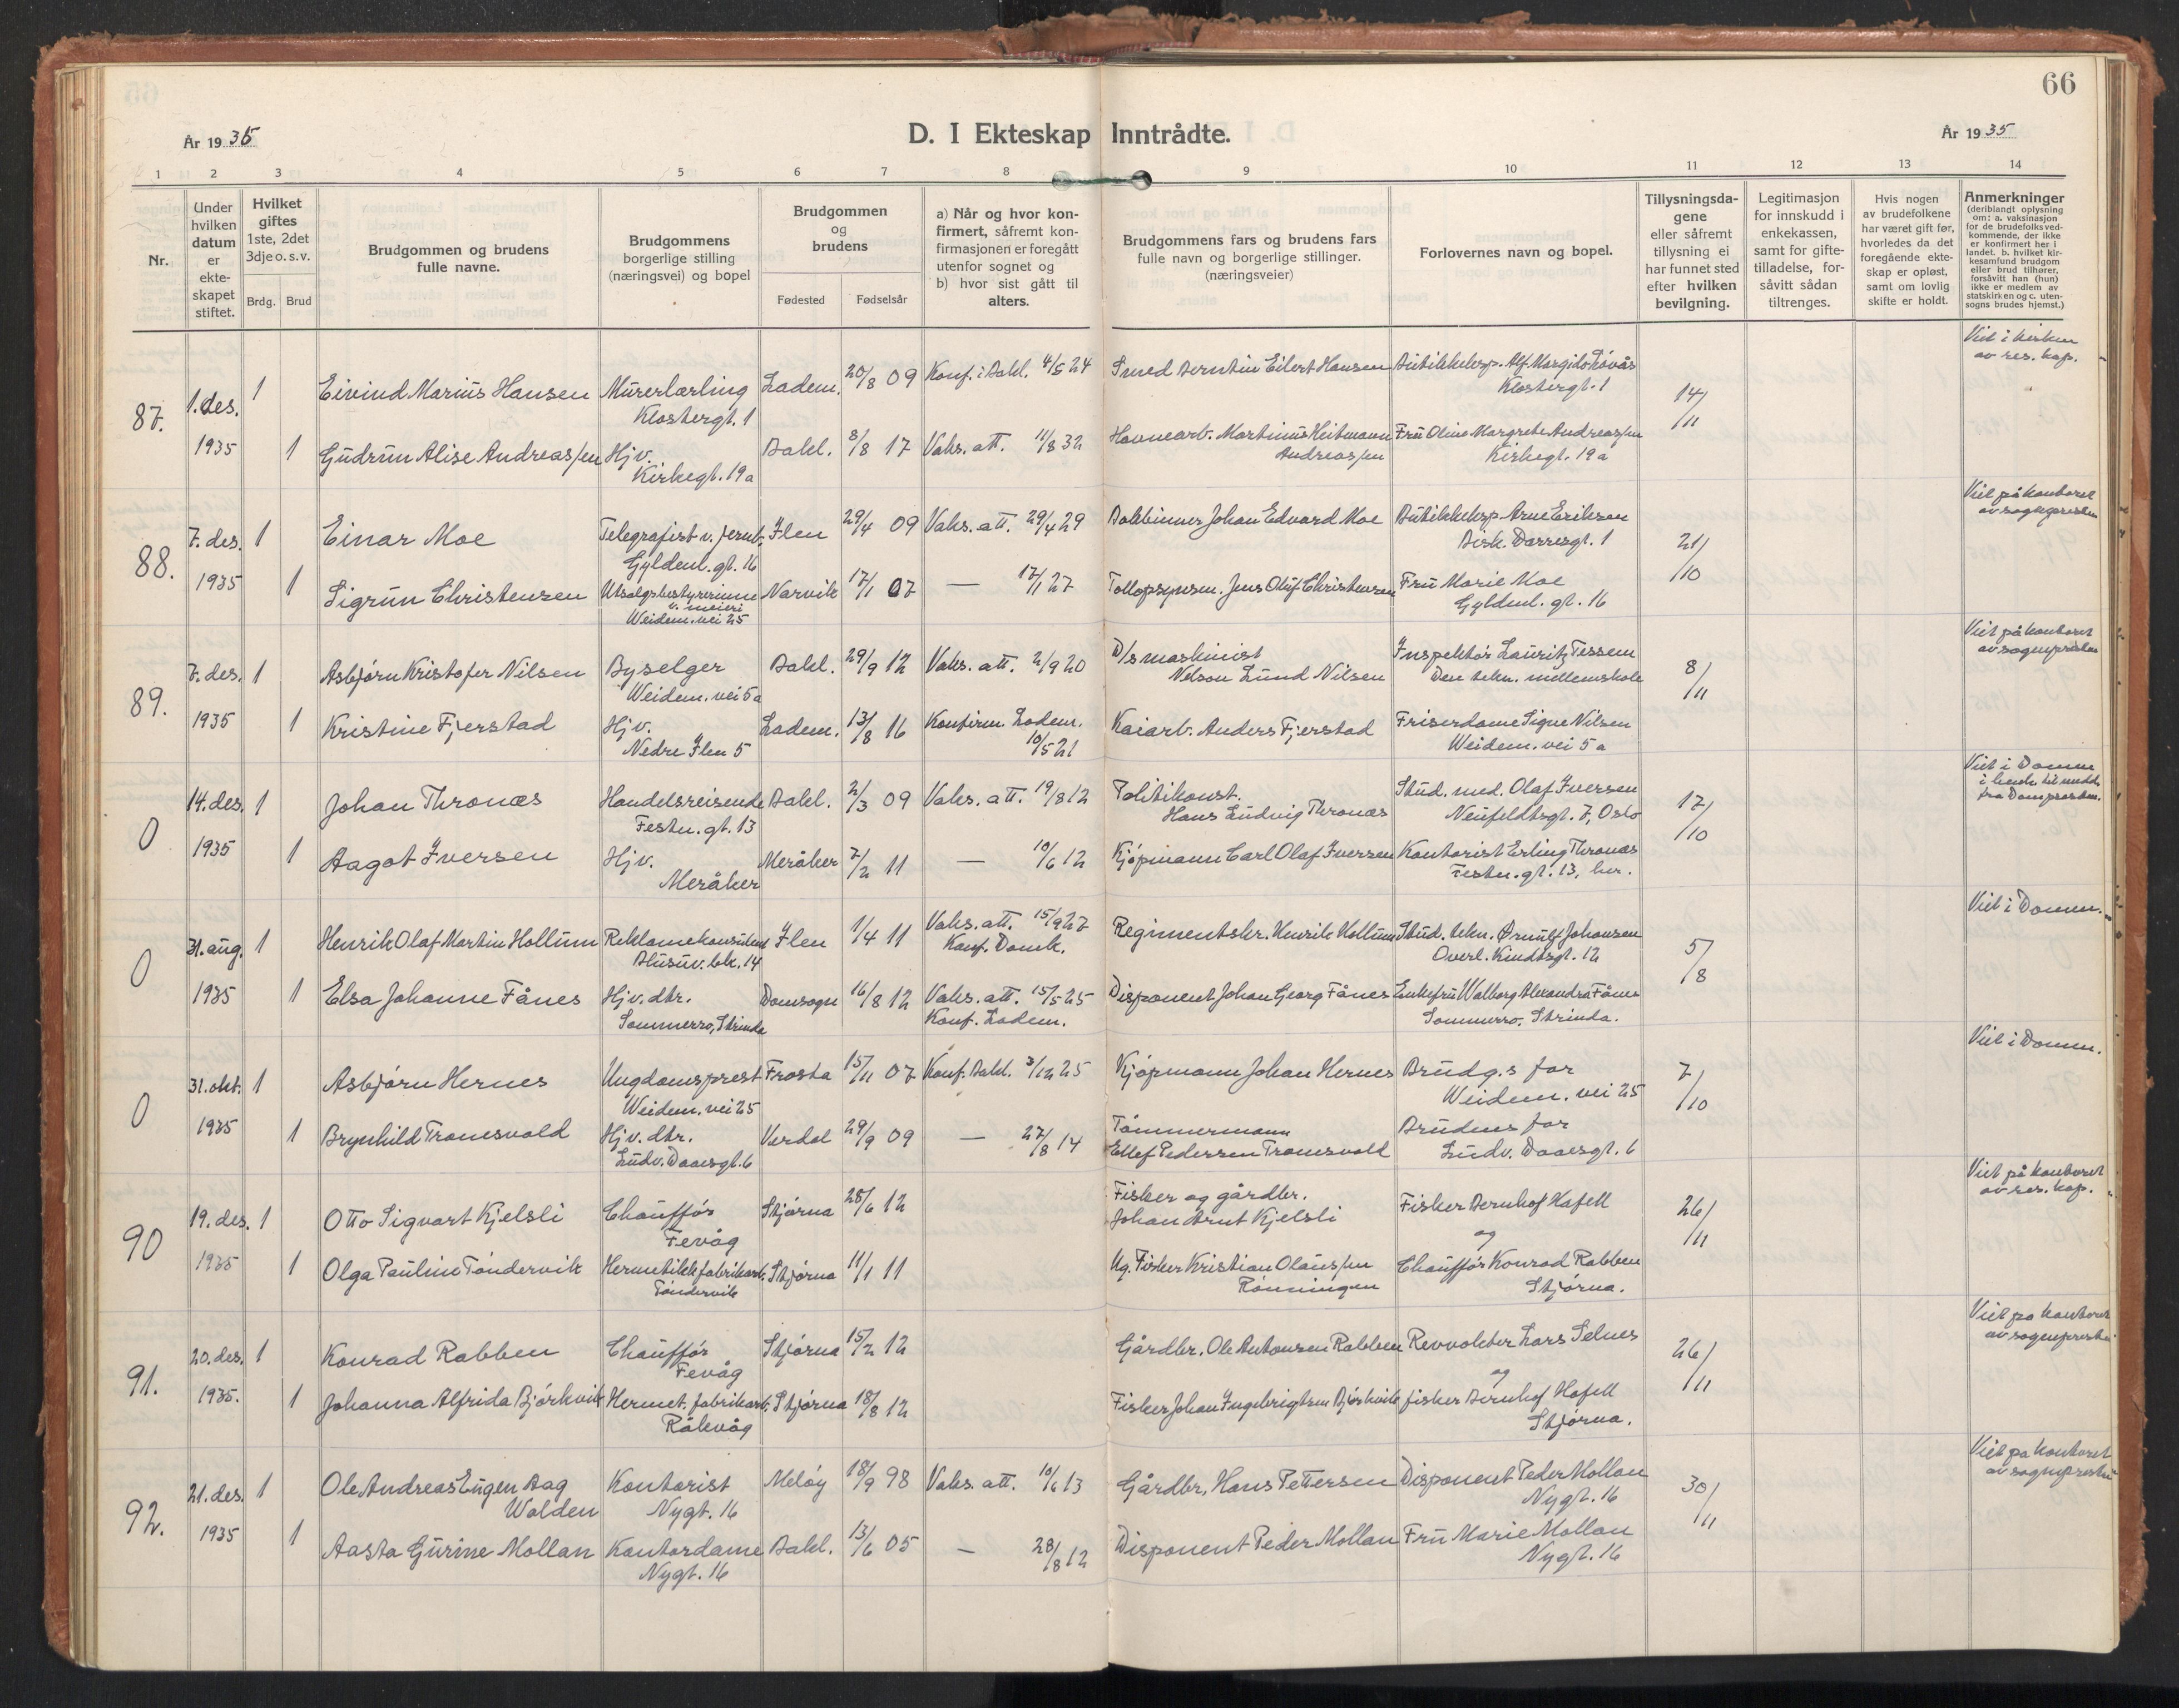 66
År 1935
D. I Ekteskap Inntrådte.
År 1935
1 2 3 4 5 6 7 8 9 10 11 12 13 14
Nr.
Under hvilken datum er ekteskapet stiftet.
Hvilket giftes 1ste, 2det 3dje o. s. v.
Brdg. Brud
Brudgommen og brudens fulle navne.
Brudgommens borgerlige stilling (næringsvei) og bopel
Brudgommen og brudens
Fødested Fødselsår
a) Når og hvor konfirmert, såfremt konfirmasjonen er foregått utenfor sognet og b) hvor sist gått til alters.
Brudgommens fars og brudens fars fulle navn og borgerlige stillinger. (næringsveier)
Forlovernes navn og bopel.
Tillysningsdagene eller såfremt tillysning ei har funnet sted efter hvilken bevilgning.
Legitimasjon for innskudd i enkekassen, samt for giftetilladelse, forsåvitt sådan tiltrenges.
Hvis nogen av brudefolkene har været gift før, hvorledes da det foregående ekteskap er opløst, samt om lovlig skifte er holdt.
Anmerkninger (deriblandt oplysning om: a. vaksinasjon for de brudefolksvedkommende, der ikke er konfirmert her i landet. b. hvilket kirkesamfund brudgom eller brud tilhører, forsåvitt han (hun) ikke er medlem av statskirken og c. utensogns brudes hjemst.)
Viet i kirken
av res. kap.
87. 1. des. 1 Eivind Marius Hansen Murerlærling Ladem. 20/8 09 Konf. i Bakl. 4/5 24 Smed Berntin Eilert Hansen Butikkeksp. Alf Margido Løvås
Klostergt. 1 Klostergt. 1 14/11
1935 1 Gudrun Alise Andreassen Hjv. Bakl. 8/8 17 Vaks. att. 11/8 32 Havnearb. Martinus Heitmann Fru Oline Margrete Andreassen
Kirkegt. 19a Andreassen Kirkegt. 19a
Viet på kontoret
av sognepresten
88. 7. des. 1 Einar Moe Telegrafist v. jernb. Ilen 29/4 09 Vaks. att. 29/4 29 Johan Edvard Moe Butikkeksp. Arne Eriksen
Gyldenl. gt. 16 Bisk. Darresgt. 1 21/10
1935 1 Sigrun Christensen Utsalgsbestyrerinne Narvik 17/1 07 — 17/1 27 Tollopsynsm. Jens Oluf Christensen Fru Marie Moe
v. meieri
Weidem. vei 25 Gyldenl. gt. 16
Viet på kontoret
av sognepresten
89. 7. des. 1 Asbjørn Kristofer Nilsen Byselger Bakl. 29/9 12 Vaks. att. 2/9 20 D/s maskinist Inspektør Lauritz Tessem
Weidem. vei 5a Nelson Lund Nilsen Den tekn. mellemskole 8/11
1935 1 Kristine Fjerstad Hjv. Ladem. 13/8 16 Konfirm. Ladem. Kaiarb. Anders Fjerstad Friserdame Signe Nilsen
Nedre Ilen 5 10/5 21 Weidem. vei 5a
Viet i Domen
fra Dompresten.
0 14. des. 1 Johan Thronæs Handelsreisende Bakl. 2/3 09 Vaks. att. 19/8 12 Politikonst. Stud. med. Olaf Iversen
Festn. gt. 13 Hans Ludvig Thronæs Neufeldtsgt. 7, Oslo 17/10
1935 1 Aagot Iversen Hjv. Meråker 7/2 11 — 10/6 12 Kjøpmann Carl Olaf Iversen Kontorist Erling Thronæs
Meråker Festn. gt. 13, her.
Viet i Domen.
0 31. aug. 1 Henrik Olaf Martin Hollum Reklamekonsulent Ilen 1/4 11 Vaks. att. 15/9 27 Regimentskr. Henrik Hollum Stud. tekn. Ørnulf Johansen
Blusuv. bk. 14 Konf. Domk. Overl. Kindtsgt. 12 5/8
1935 1 Elsa Johanne Fånes Hjv. dtr. Domsogn 16/8 12 Vaks. att. 15/5 25 Disponent Johan Georg Fånes Enkefru Walborg Alexandra Fånes
Sommerro, Strinda Konf. Ladem. Sommerro, Strinda.
Viet i Domen.
0 31. okt. 1 Asbjørn Hernes Ungdomsprest Frosta 15/11 07 Konf. Bakl. 3/12 25 Kjøpmann Johan Hernes Brudg.s far
Weidem. vei 25 Weidem. vei 25 7/10
1935 1 Brynhild Tromsvold Hjv. dtr. Verdal 29/9 09 — 27/8 14 Tømmermann Brudens far
Ludv. Daaesgt. 6 Ellef Pedersen Tromsvold Ludv. Daaesgt. 6
Viet på kontoret
av res. kap.
90 19. des. 1 Otto Sigvart Kjelsli Chauffør Stjørna 25/6 12 Fisker og gårdbr. Fisker Bernhof Hafell
Fevåg Johan Arnt Kjelsli og 26/11
1935 1 Olga Pauline Tøndervik Hermetikkfabrikarb. Stjørna 11/1 11 Ug. Fisker Kristian Olaussen Chauffør Konrad Rabben
Tøndervik Rønningen Stjørna.
Viet på kontoret
av sognepresten
91. 20. des. 1 Konrad Rabben Chauffør Stjørna 15/2 12 Gårdbr. Ole Antonsen Rabben Revvokter Lars Selnes
Fevåg og 26/11
1935. 1 Johanna Alfrida Bjørkvik Hermet. fabrikarb. Stjørna 18/8 12 Fisker Johan Ingebrigtsen Bjørkvik fisker Bernhof Hafell
Råkvåg Stjørna.
Viet på kontoret
av sognepresten
92. 21. des. 1 Ole Andreas Eugen Aag Kontorist Meløy 18/9 98 Vaks. att. 10/6 13 Gårdbr. Hans Pettersen Disponent Peder Mollan
Walden Nygt. 16 Nygt. 16 30/11
1935 1 Aasta Gurine Mollan Kontordame Bakl. 13/6 05 — 28/8 12 Disponent Peder Mollan Fru Marie Mollan
Nygt. 16 Nygt. 16